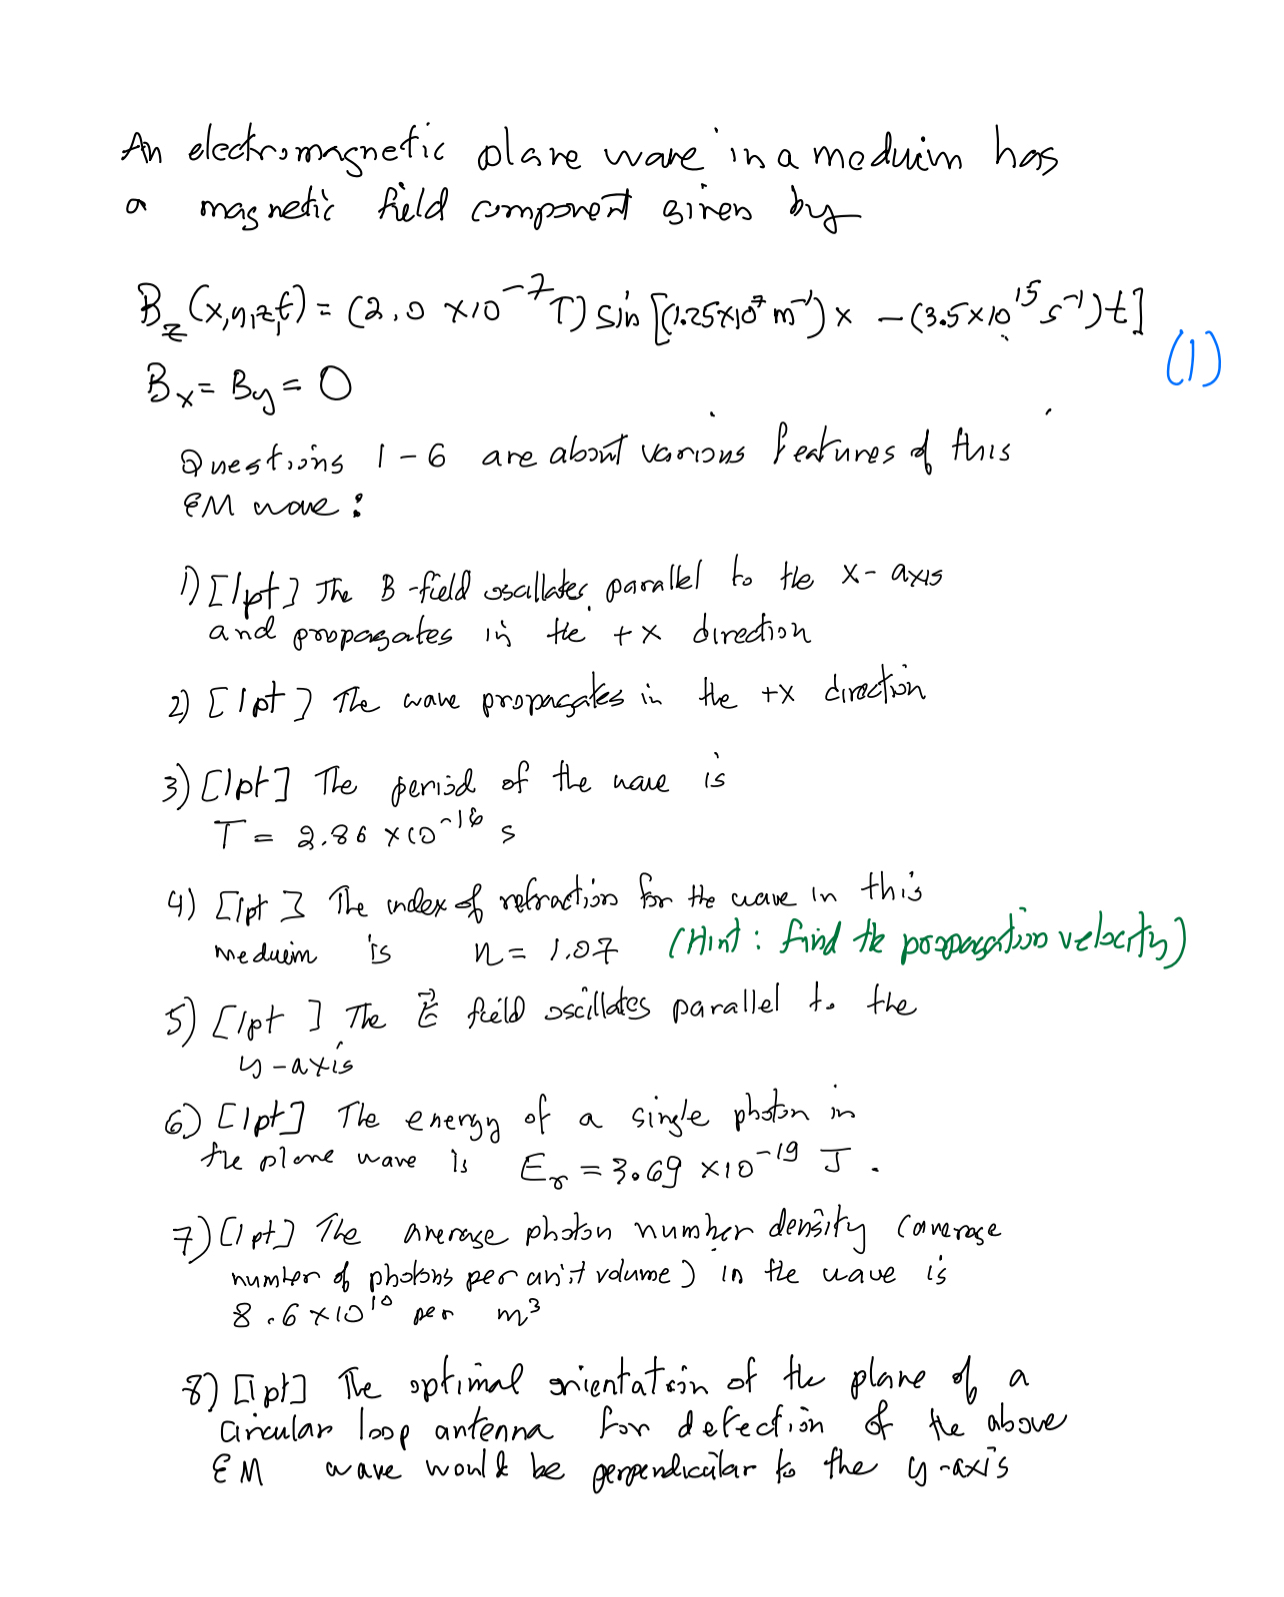 An electromagnetic plane wave in a meduim has
a magnetic field component given by
B_z(x,y,z,t) = (2.0 ×10^-7 T) sin [(1.25×10^7 m^-1) x - (3.5×10^15 s^-1) t]
(1)
B_x = B_y = 0
Questions 1-6 are about various features of this
EM wave:
1) [1pt] The B-field oscillates parallel to the x-axis
and propagates in the +x direction
2) [1pt] The wave propagates in the +x direction
3) [1pt] The period of the wave is
T = 2.86 ×10^-16 s
4) [1pt] The index of refraction for the wave in this
meduim is n = 1.07 (Hint: find the propagation velocity)
5) [1pt] The E⃗ field oscillates parallel to the
y-axis
6) [1pt] The energy of a single photon in
the plane wave is E_γ = 3.69 ×10^-19 J.
7) [1pt] The average photon number density (average
number of photons per unit volume) in the wave is
8.6×10^10 per m^3
8) [1pt] The optimal orientation of the plane of a
circular loop antenna for detection of the above
EM wave would be perpendicular to the y-axis